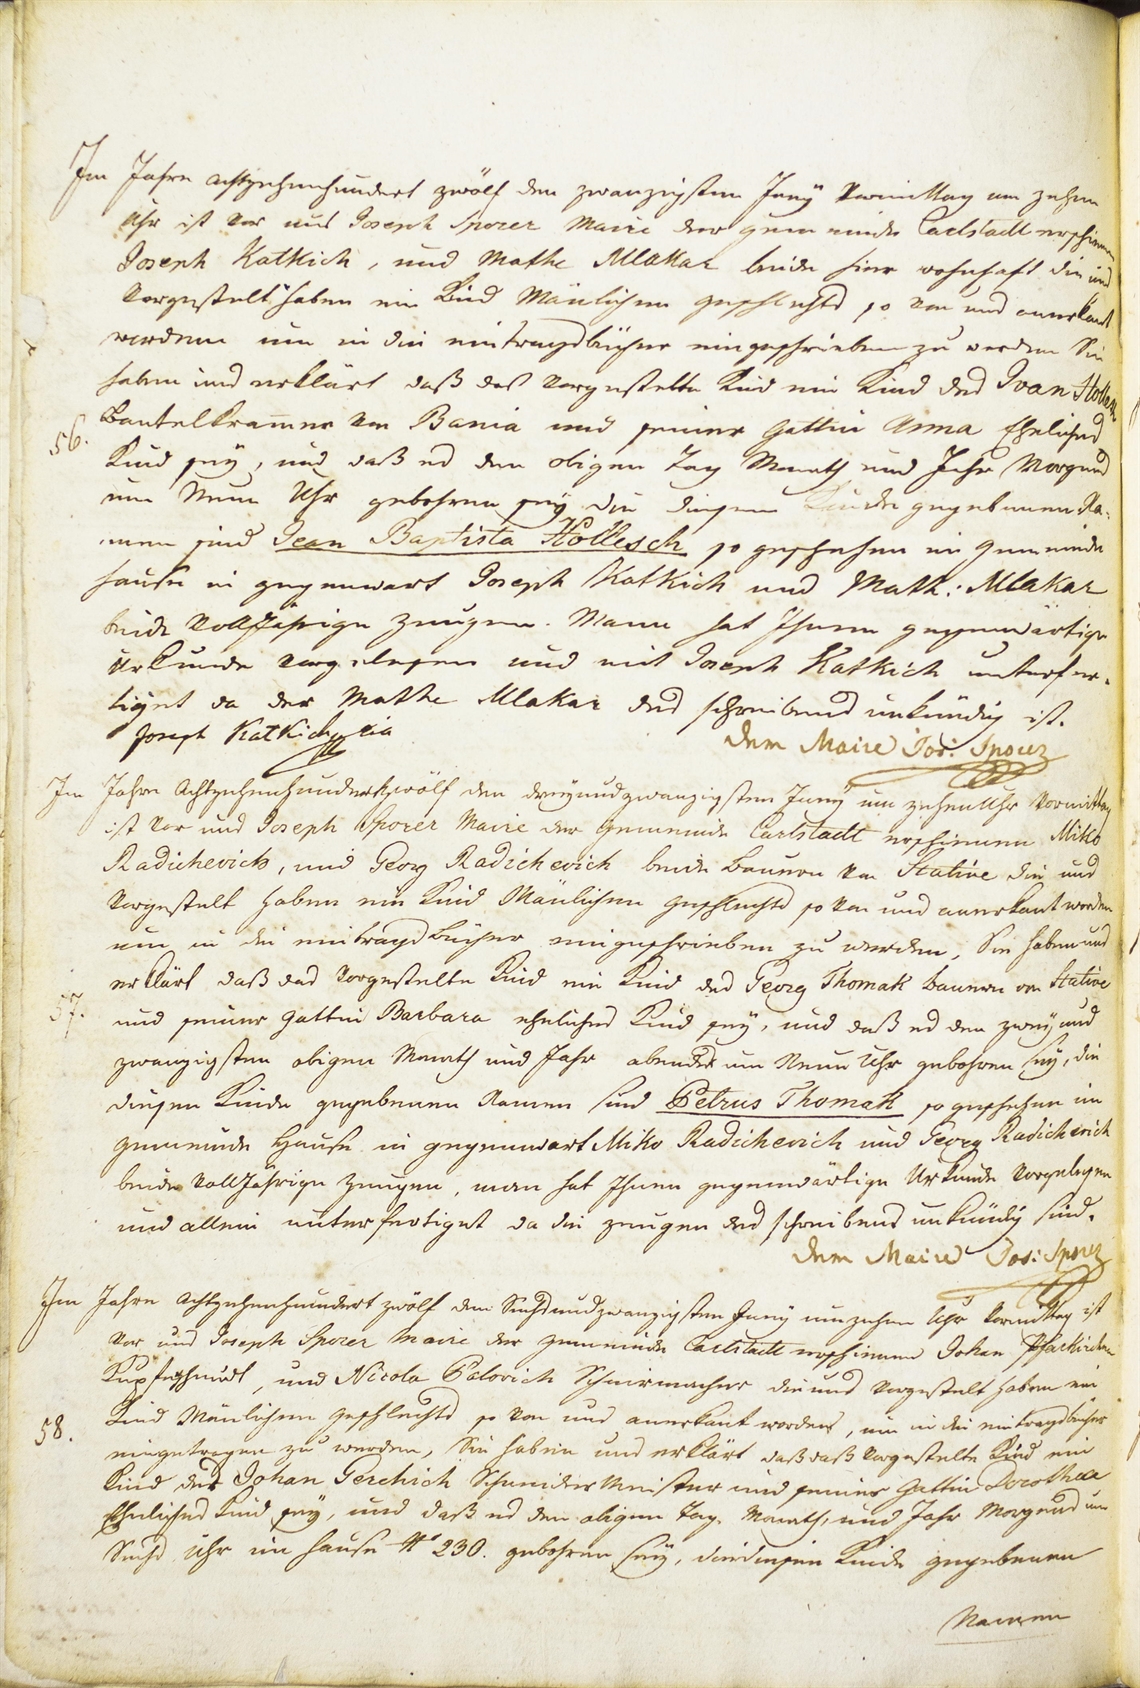 Im Jahre achtzehenhundert zwölf den zwanzigsten Juny Vormittag um zehen
Uhr ist vor uns Joseph Sporer Maire der gemeinde Carlstadt erschienen
Joseph Katkich, und Mathe Mlakar beide hier wohnhaft die uns
vorgestelt haben ein Kind Mänlichen geschlechts so von uns anerkant
worden um in die eintragsbücher eingeschrieben zu werden Sie
haben uns erklärt daß das vorgestelte Kind ein Kind des Ivan Hollesch
56. Bantelkramer von Bania und seiner Gattin Anna Eheliches
Kind sey, und daß es den obigen Tag Monath und Jahr Morgens
um Neun Uhr gebohren sey die diesem Kinde gegebenen Na-
men sind Jean Baptista Hollesch so geschehen im Gemeinde
hause in gegenwart Joseph Katkich und Math: Mlakar
beide volljährige Zeugen. Mann hat Ihnen gegenwärtige
Urkunde vorgelesen und mit Joseph Katkich unterfer-
tiget da der Mathe Mlakar des schreibens unkündig ist.
Joseph Katkich
Der Maire Jos: Sporer
Im Jahre Achtzehenhundertzwölf den dreyundzwanzigsten Juny um zehen Uhr Vormittag
ist vor uns Joseph Sporer Maire der Gemeinde Carlstadt erschienen Miko
Radichevich, und Georg Radichevich beide Bauern von Stative die uns
vorgestelt haben ein Kind Mänlichen geschlechts so von uns anerkant worden
um in die eintrags Bücher eingeschrieben zu werden, Sie haben uns
erklärt daß das vorgestelte Kind ein Kind des Georg Thomak Bauern von Stative
57. und seiner Gattin Barbara eheliches Kind sey, und daß es den zwey und
zwanzigsten obigen Monath und Jahr abends um Neun Uhr gebohren sey, die
diesem Kinde gegebenen Namen sind Petrus Thomak so geschehen im
gemeinde Hause in gegenwart Miko Radichevich und Georg Radichevich
beide volljährige Zeugen, man hat Ihnen gegenwärtige Urkunde vorgelesen
und allein unterfertiget da die zeugen des schreibens unkündig sind.
Der Maire Jos: Sporer
Im Jahre Achtzehenhundert zwölf den Sechsundzwanzigsten Juny um zehen Uhr Vormittag ist
vor uns Joseph Sporer Maire der gemeinde Carlstadt erschienen Johan
Kupferschmidt, und Nicola Palovich Schnirmacher die uns vorgestelt haben ein
58. Kind Mänlichen geschlechts so von uns anerkant worden, um in die eintragsbücher
eingetragen zu werden, Sie haben uns erklärt daß daß vorgestelte Kind ein
Kind des Johan Gerchich Schneider Meister und seiner Gattin Dorothea
Eheliches Kind sey, und daß es den obigen Tag Monath, und Jahr Morgens um
Sechs Uhr im Hause No 230. gebohren sey, die diesem Kinde gegebenen
Namen